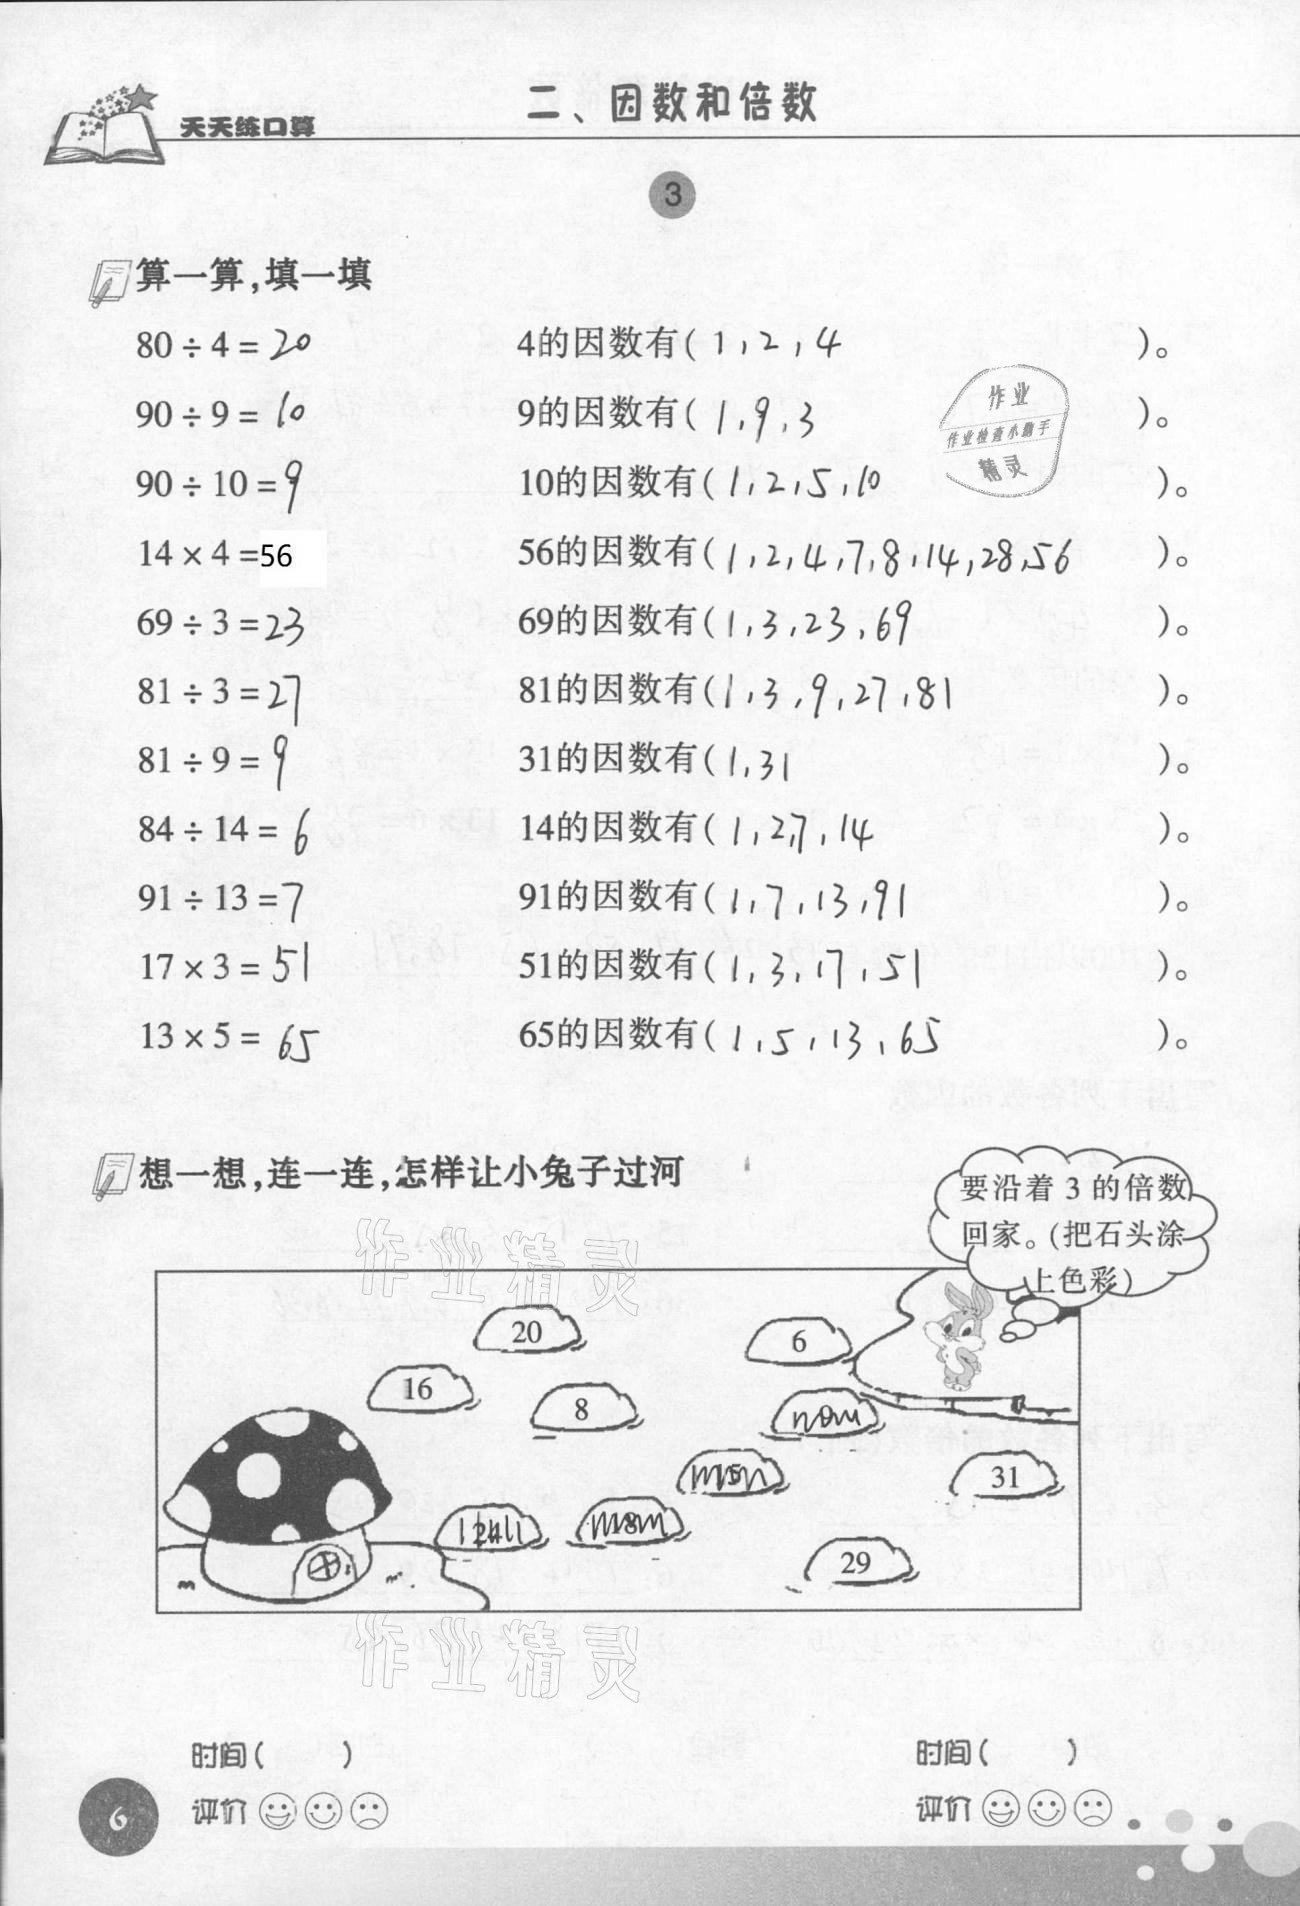 天天练口算
二、因数和倍数
3
算一算,填一填
80÷4=20 4的因数有(1,2,4)。
90÷9=10 9的因数有(1,9,3)。
90÷10=9 10的因数有(1,2,5,10)。
14×4=56 56的因数有(1,2,4,7,8,14,28,56)。
69÷3=23 69的因数有(1,3,23,69)。
81÷3=27 81的因数有(1,3,9,27,81)。
81÷9=9 31的因数有(1,31)。
84÷14=6 14的因数有(1,2,7,14)。
91÷13=7 91的因数有(1,7,13,91)。
17×3=51 51的因数有(1,3,17,51)。
13×5=65 65的因数有(1,5,13,65)。
作业
作业检查小助手
精灵
想一想,连一连,怎样让小兔子过河
要沿着3的倍数
回家。(把石头涂
上色彩)
作业精灵
20
6
16
8
9
15
31
24
18
29
作业精灵
时间( ) 时间( )
评价 评价
6